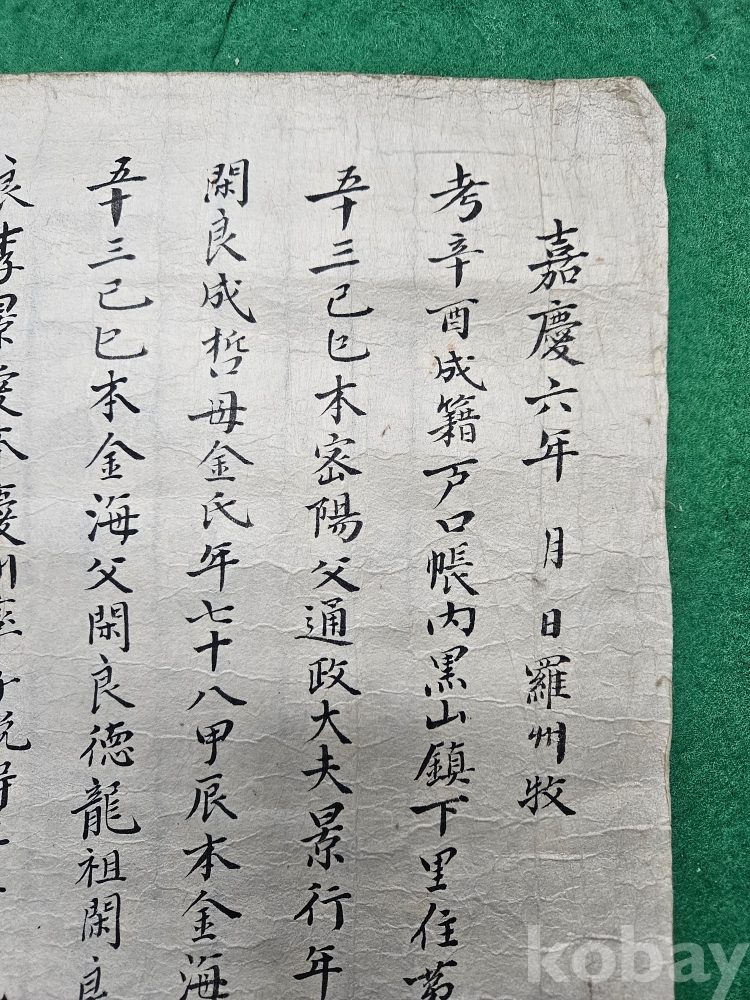 嘉慶六年 月 日羅州牧
考辛酉成籍戸口帳內黒山鎮下里住第
五十三己巳本密陽父通政大夫景行年
閑良成哲母金氏年七十八甲辰本金海
五十三己巳本金海父閑良德龍祖閑良
良李景愛本慶州
kobay